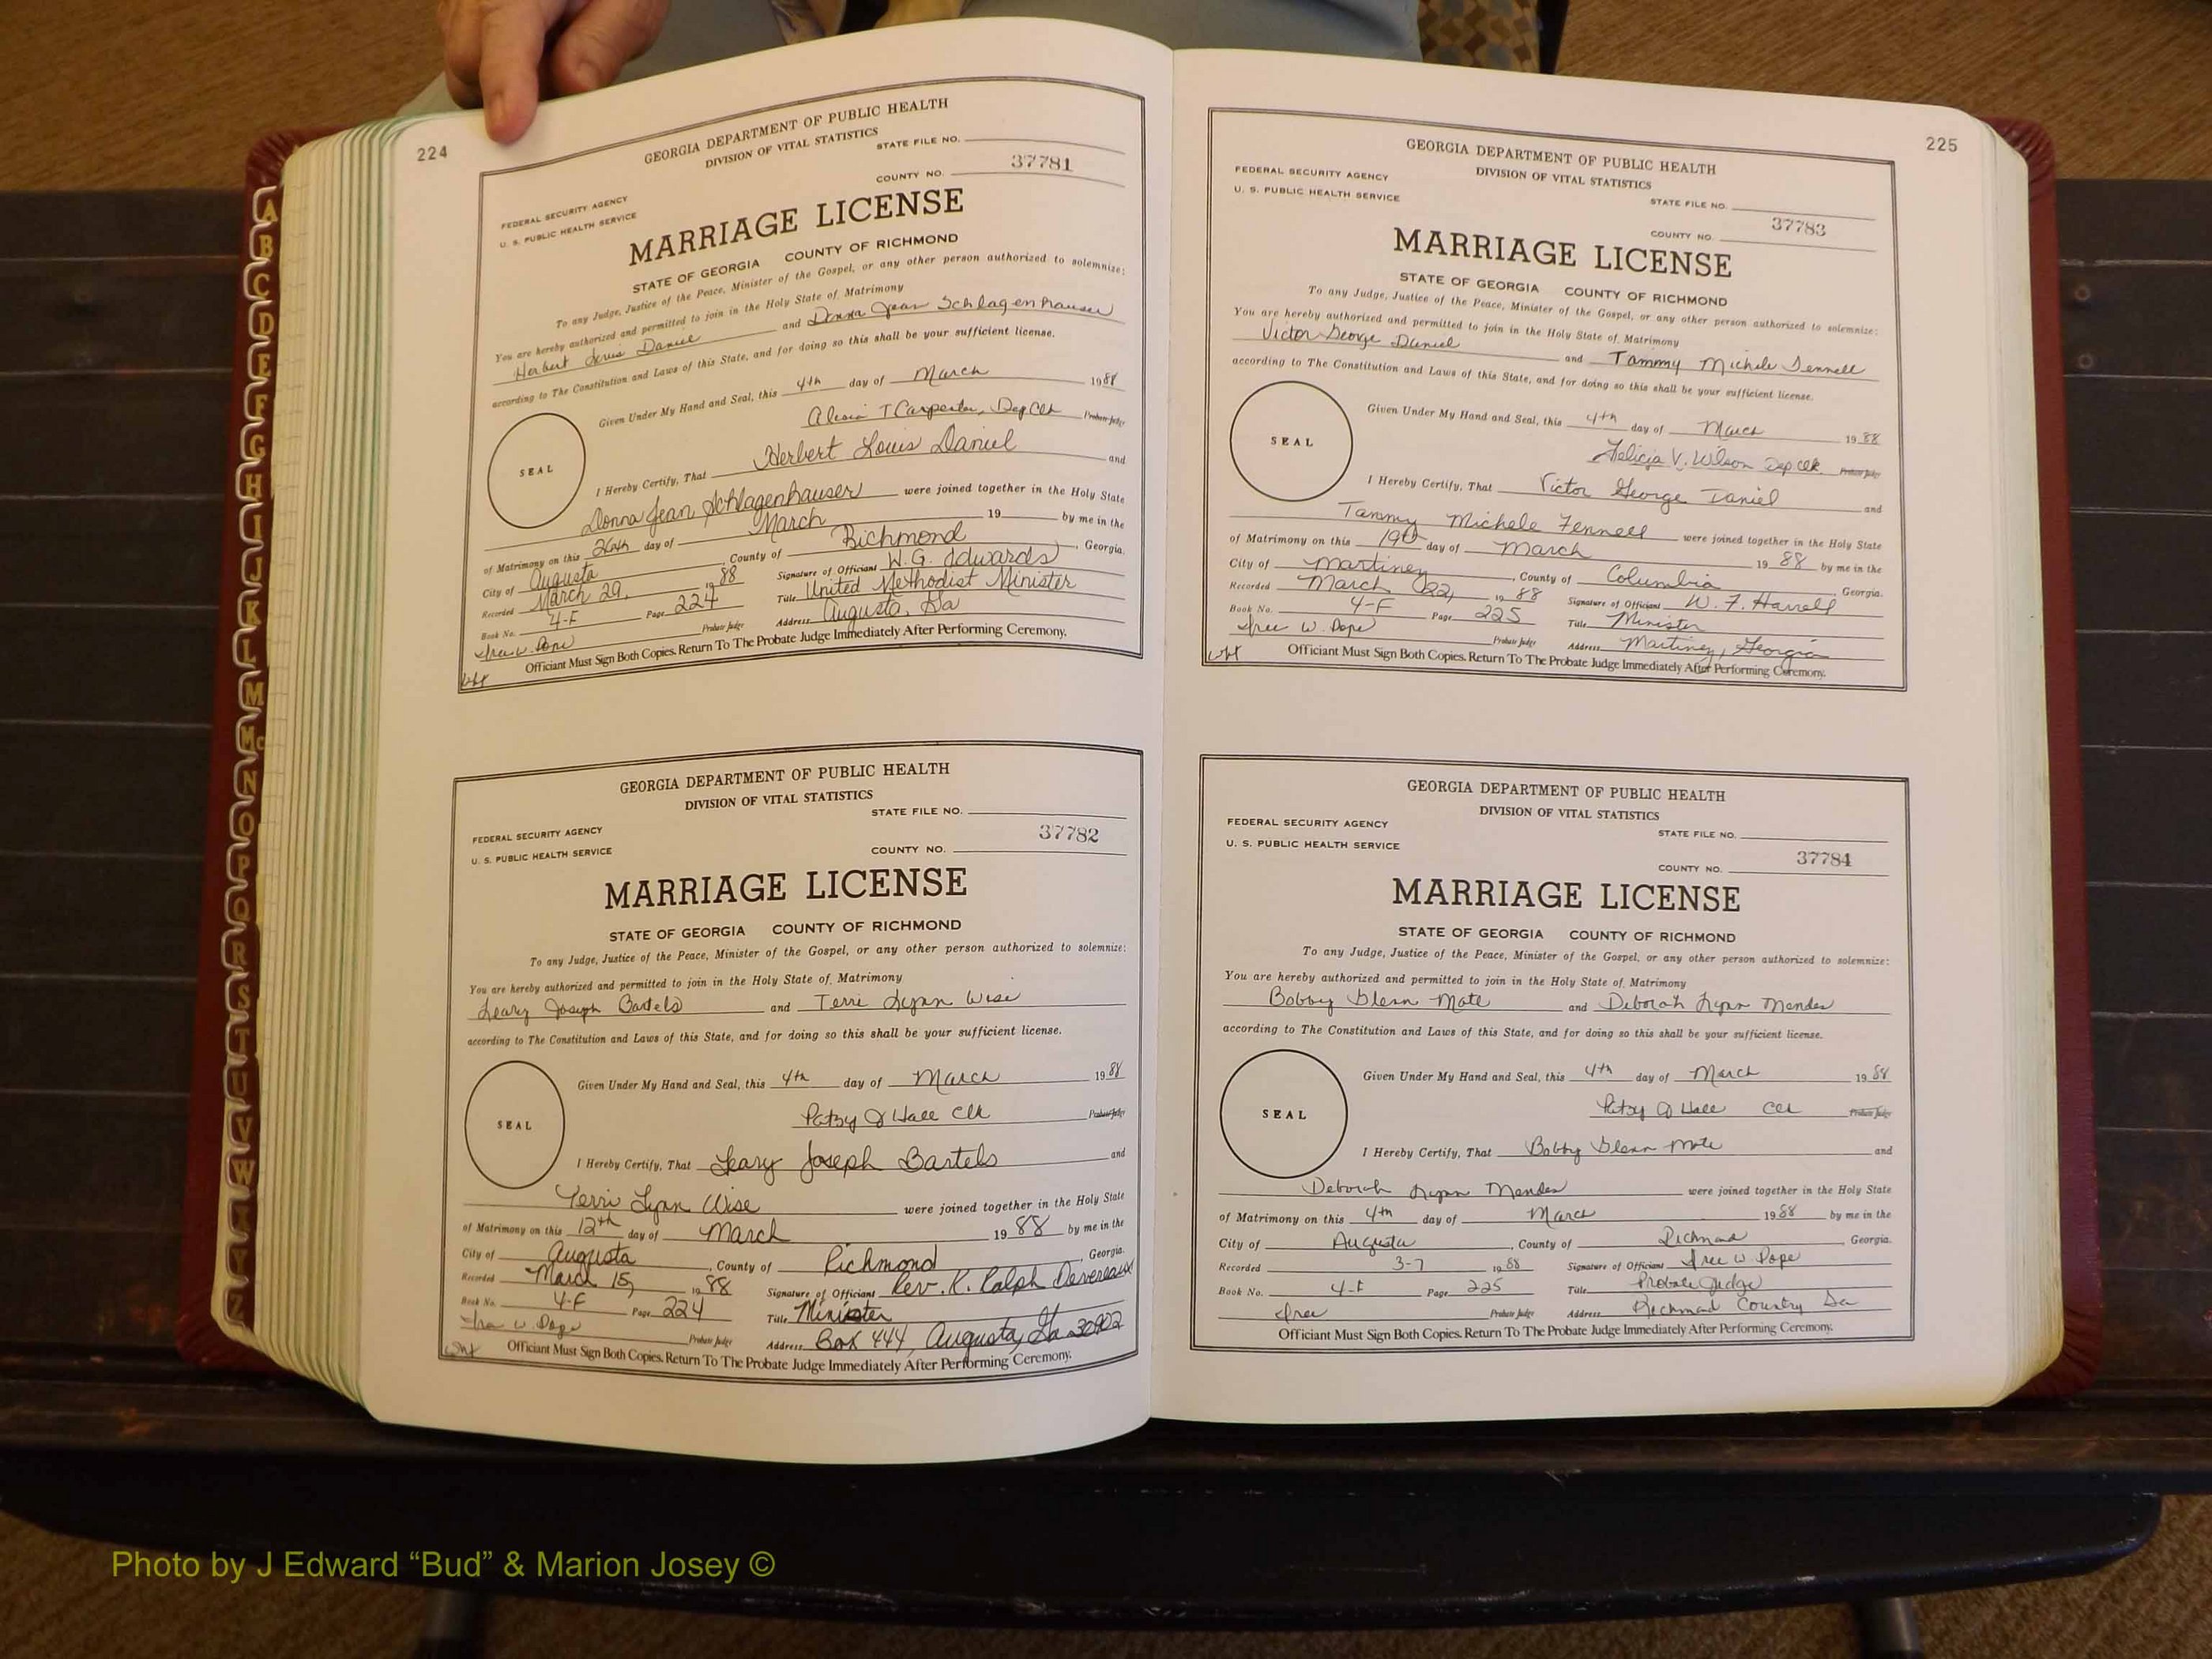 224
GEORGIA DEPARTMENT OF PUBLIC HEALTH
DIVISION OF VITAL STATISTICS
STATE FILE NO.
37781
COUNTY NO.
FEDERAL SECURITY AGENCY
U. S. PUBLIC HEALTH SERVICE
MARRIAGE LICENSE
STATE OF GEORGIA COUNTY OF RICHMOND
To any Judge, Justice of the Peace, Minister of the Gospel, or any other person authorized to solemnize:
You are hereby authorized and permitted to join in the Holy State of Matrimony
Herbert Louis Daniel and Donna Jean Schlagenhauser
according to The Constitution and Laws of this State, and for doing so this shall be your sufficient license.
Given Under My Hand and Seal, this 4th day of March 1988
Alesia T Carpenter, Dep Clk Probate Judge
SEAL
I Hereby Certify, That Herbert Louis Daniel and
Donna Jean Schlagenhauser were joined together in the Holy State
of Matrimony on this 26th day of March 19 by me in the
City of Augusta, County of Richmond, Georgia.
Recorded March 29, 1988 Signature of Officiant W. G. Edwards
Book No. 4-F Page 224 Title United Methodist Minister
W. Pope Probate Judge Address Augusta, Ga
Officiant Must Sign Both Copies. Return To The Probate Judge Immediately After Performing Ceremony.
GEORGIA DEPARTMENT OF PUBLIC HEALTH
DIVISION OF VITAL STATISTICS
STATE FILE NO.
37782
FEDERAL SECURITY AGENCY
U. S. PUBLIC HEALTH SERVICE
COUNTY NO.
MARRIAGE LICENSE
STATE OF GEORGIA COUNTY OF RICHMOND
To any Judge, Justice of the Peace, Minister of the Gospel, or any other person authorized to solemnize:
You are hereby authorized and permitted to join in the Holy State of Matrimony
Leary Joseph Bartels and Terri Lynn Wise
according to The Constitution and Laws of this State, and for doing so this shall be your sufficient license.
Given Under My Hand and Seal, this 4th day of March 1988
Patsy J Hall Clk Probate Judge
SEAL
I Hereby Certify, That Leary Joseph Bartels and
Terri Lynn Wise were joined together in the Holy State
of Matrimony on this 12th day of March 1988 by me in the
City of Augusta, County of Richmond, Georgia.
Recorded March 15, 1988 Signature of Officiant Rev. K. Ralph Devereaux
Book No. 4-F Page 224 Title Minister
W. Pope Probate Judge Address Box 444, Augusta, Ga 30902
Officiant Must Sign Both Copies. Return To The Probate Judge Immediately After Performing Ceremony.
225
GEORGIA DEPARTMENT OF PUBLIC HEALTH
DIVISION OF VITAL STATISTICS
FEDERAL SECURITY AGENCY
U. S. PUBLIC HEALTH SERVICE
STATE FILE NO.
37783
COUNTY NO.
MARRIAGE LICENSE
STATE OF GEORGIA COUNTY OF RICHMOND
To any Judge, Justice of the Peace, Minister of the Gospel, or any other person authorized to solemnize:
You are hereby authorized and permitted to join in the Holy State of Matrimony
Victor George Daniel and Tammy Michele Fennell
according to The Constitution and Laws of this State, and for doing so this shall be your sufficient license.
Given Under My Hand and Seal, this 4th day of March 1988
Felicia V. Wilson Dep Clk Probate Judge
SEAL
I Hereby Certify, That Victor George Daniel and
Tammy Michele Fennell were joined together in the Holy State
of Matrimony on this 19th day of March 1988 by me in the
City of Martinez, County of Columbia Georgia.
Recorded March 22, 1988 Signature of Officiant W. F. Harrell
Book No. 4-F Page 225 Title Minister
W. Pope Probate Judge Address Martinez, Georgia
Officiant Must Sign Both Copies. Return To The Probate Judge Immediately After Performing Ceremony.
GEORGIA DEPARTMENT OF PUBLIC HEALTH
DIVISION OF VITAL STATISTICS
FEDERAL SECURITY AGENCY
U. S. PUBLIC HEALTH SERVICE
STATE FILE NO.
37784
COUNTY NO.
MARRIAGE LICENSE
STATE OF GEORGIA COUNTY OF RICHMOND
To any Judge, Justice of the Peace, Minister of the Gospel, or any other person authorized to solemnize:
You are hereby authorized and permitted to join in the Holy State of Matrimony
Bobby Glenn Mote and Deborah Lynn Mendes
according to The Constitution and Laws of this State, and for doing so this shall be your sufficient license.
Given Under My Hand and Seal, this 4th day of March 1988
Patsy J Hall Clk Probate Judge
SEAL
I Hereby Certify, That Bobby Glenn Mote and
Deborah Lynn Mendes were joined together in the Holy State
of Matrimony on this 4th day of March 1988 by me in the
City of Augusta, County of Richmond Georgia.
Recorded 3-7 1988 Signature of Officiant W Pope
Book No. 4-F Page 225 Title Probate Judge
Probate Judge Address Richmond Country Ga
Officiant Must Sign Both Copies. Return To The Probate Judge Immediately After Performing Ceremony.
A
B
C
D
E
F
G
H
I
J
K
L
M
Mc
N
O
P
Q
R
S
T
U
V
W
X
Y
Z
Photo by J Edward “Bud” & Marion Josey ©